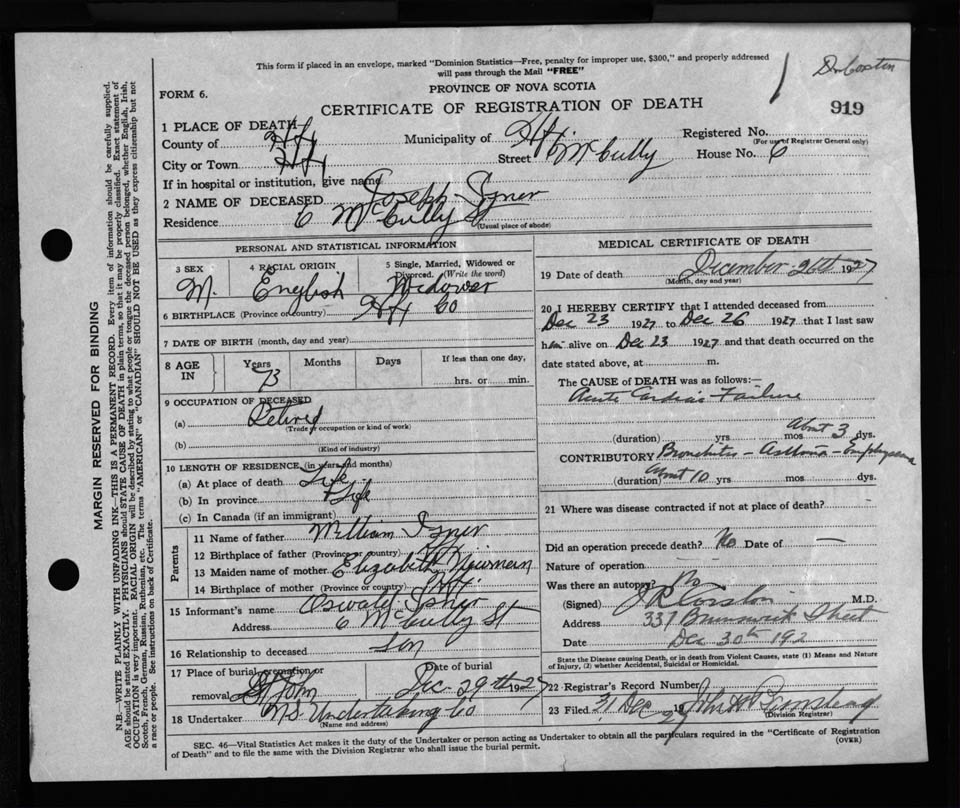 This form if placed in an envelope, marked "Dominion Statistics—Free, penalty for improper use, $300," and properly addressed
will pass through the Mail "FREE"
PROVINCE OF NOVA SCOTIA
FORM 6.
CERTIFICATE OF REGISTRATION OF DEATH
919
1 PLACE OF DEATH
County of Hfx Municipality of Hfx Registered No.
(For use of Registrar General only)
City or Town Hfx Street McCully House No. 6
If in hospital or institution, give name
2 NAME OF DECEASED Joseph Isnor
Residence 6 McCully St
(Usual place of abode)
PERSONAL AND STATISTICAL INFORMATION
3 SEX M. 4 RACIAL ORIGIN English 5 Single, Married, Widowed or Divorced. (Write the word) Widower
6 BIRTHPLACE (Province or country) Hfx Co
7 DATE OF BIRTH (month, day and year)
8 AGE IN Years 73 Months Days If less than one day, hrs. or min.
9 OCCUPATION OF DECEASED
(a) Retired
(Trade or occupation or kind of work)
(b)
(Kind of industry)
10 LENGTH OF RESIDENCE (in years and months)
(a) At place of death Life
(b) In province Life
(c) In Canada (if an immigrant)
Parents
11 Name of father William Isnor
12 Birthplace of father (Province or country) Hfx
13 Maiden name of mother Elizabeth Newman
14 Birthplace of mother (Province or country) Hfx.
15 Informant's name Oswald Isnor
Address 6 McCully St
16 Relationship to deceased son
17 Place of burial, cremation or removal St John Date of burial Dec. 29th 1927
18 Undertaker N.S. Undertaking Co
(Name and address)
MEDICAL CERTIFICATE OF DEATH
19 Date of death December 26th 1927
(Month, day and year)
20 I HEREBY CERTIFY that I attended deceased from
Dec 23 1927 to Dec 26 1927 that I last saw
him alive on Dec 23 1927 and that death occurred on the
date stated above, at m.
The CAUSE OF DEATH was as follows:—
Acute Cardiac Failure
(duration) yrs mos about 3 dys.
CONTRIBUTORY Bronchitis - Asthma - Emphysema
(duration) about 10 yrs mos dys.
21 Where was disease contracted if not at place of death?
Did an operation precede death? No Date of —
Nature of operation
Was there an autopsy? No
(Signed) M.D.
Address 331 Brunswick Street
Date Dec 30th 192
State the Disease causing Death, or in death from Violent Causes, state (1) Means and Nature
of Injury, (2) whether Accidental, Suicidal or Homicidal.
22 Registrar's Record Number
23 Filed 31 Dec 1927 John
(Division Registrar)
SEC. 46—Vital Statistics Act makes it the duty of the Undertaker or person acting as Undertaker to obtain all the particulars required in the "Certificate of Registration
of Death" and to file the same with the Division Registrar who shall issue the burial permit.
(OVER)
MARGIN RESERVED FOR BINDING
N.B.—WRITE PLAINLY WITH UNFADING INK—THIS IS A PERMANENT RECORD. Every item of information should be carefully supplied.
AGE should be stated EXACTLY. PHYSICIANS should STATE CAUSE OF DEATH in plain terms, so that it may be properly classified. Exact statement of
OCCUPATION is very important. RACIAL ORIGIN will be described by stating to what people or tongue the deceased person belonged, whether English, Irish,
Scotch, French, German, Russian, Ruthenian, etc. The terms "AMERICAN" or "CANADIAN" SHOULD NOT BE USED as they express citizenship but not
a race or people. See instructions on back of Certificate.